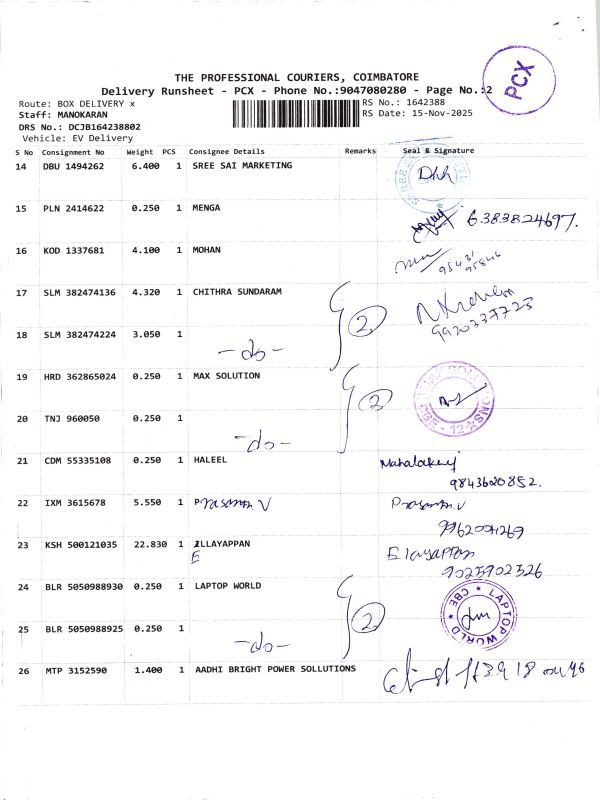 PCX
THE PROFESSIONAL COURIERS, COIMBATORE
Delivery Runsheet - PCX - Phone No.:9047080280 - Page No.:2
Route: BOX DELIVERY x
Staff: MANOKARAN
DRS No.: DCJB164238802
Vehicle: EV Delivery
RS No.: 1642388
RS Date: 15-Nov-2025
S No Consignment No Weight PCS Consignee Details Remarks Seal & Signature
14 DBU 1494262 6.400 1 SREE SAI MARKETING
15 PLN 2414622 0.250 1 MENGA 6383824697.
16 KOD 1337681 4.100 1 MOHAN
98431
95846
17 SLM 382474136 4.320 1 CHITHRA SUNDARAM 2
9920337723
18 SLM 382474224 3.050 1 -do-
19 HRD 362865024 0.250 1 MAX SOLUTION 2
20 TNJ 960050 0.250 1 -do-
21 CDM 55335108 0.250 1 HALEEL
9843620852.
22 IXM 3615678 5.550 1 Prasanna. V Prasanna. V
9962001269
23 KSH 500121035 22.830 1 ILLAYAPPAN Elayappan
E
9025902526
24 BLR 5050988930 0.250 1 LAPTOP WORLD 2 LAPTOP WORLD CBE
25 BLR 5050988925 0.250 1 -do-
26 MTP 3152590 1.400 1 AADHI BRIGHT POWER SOLLUTIONS